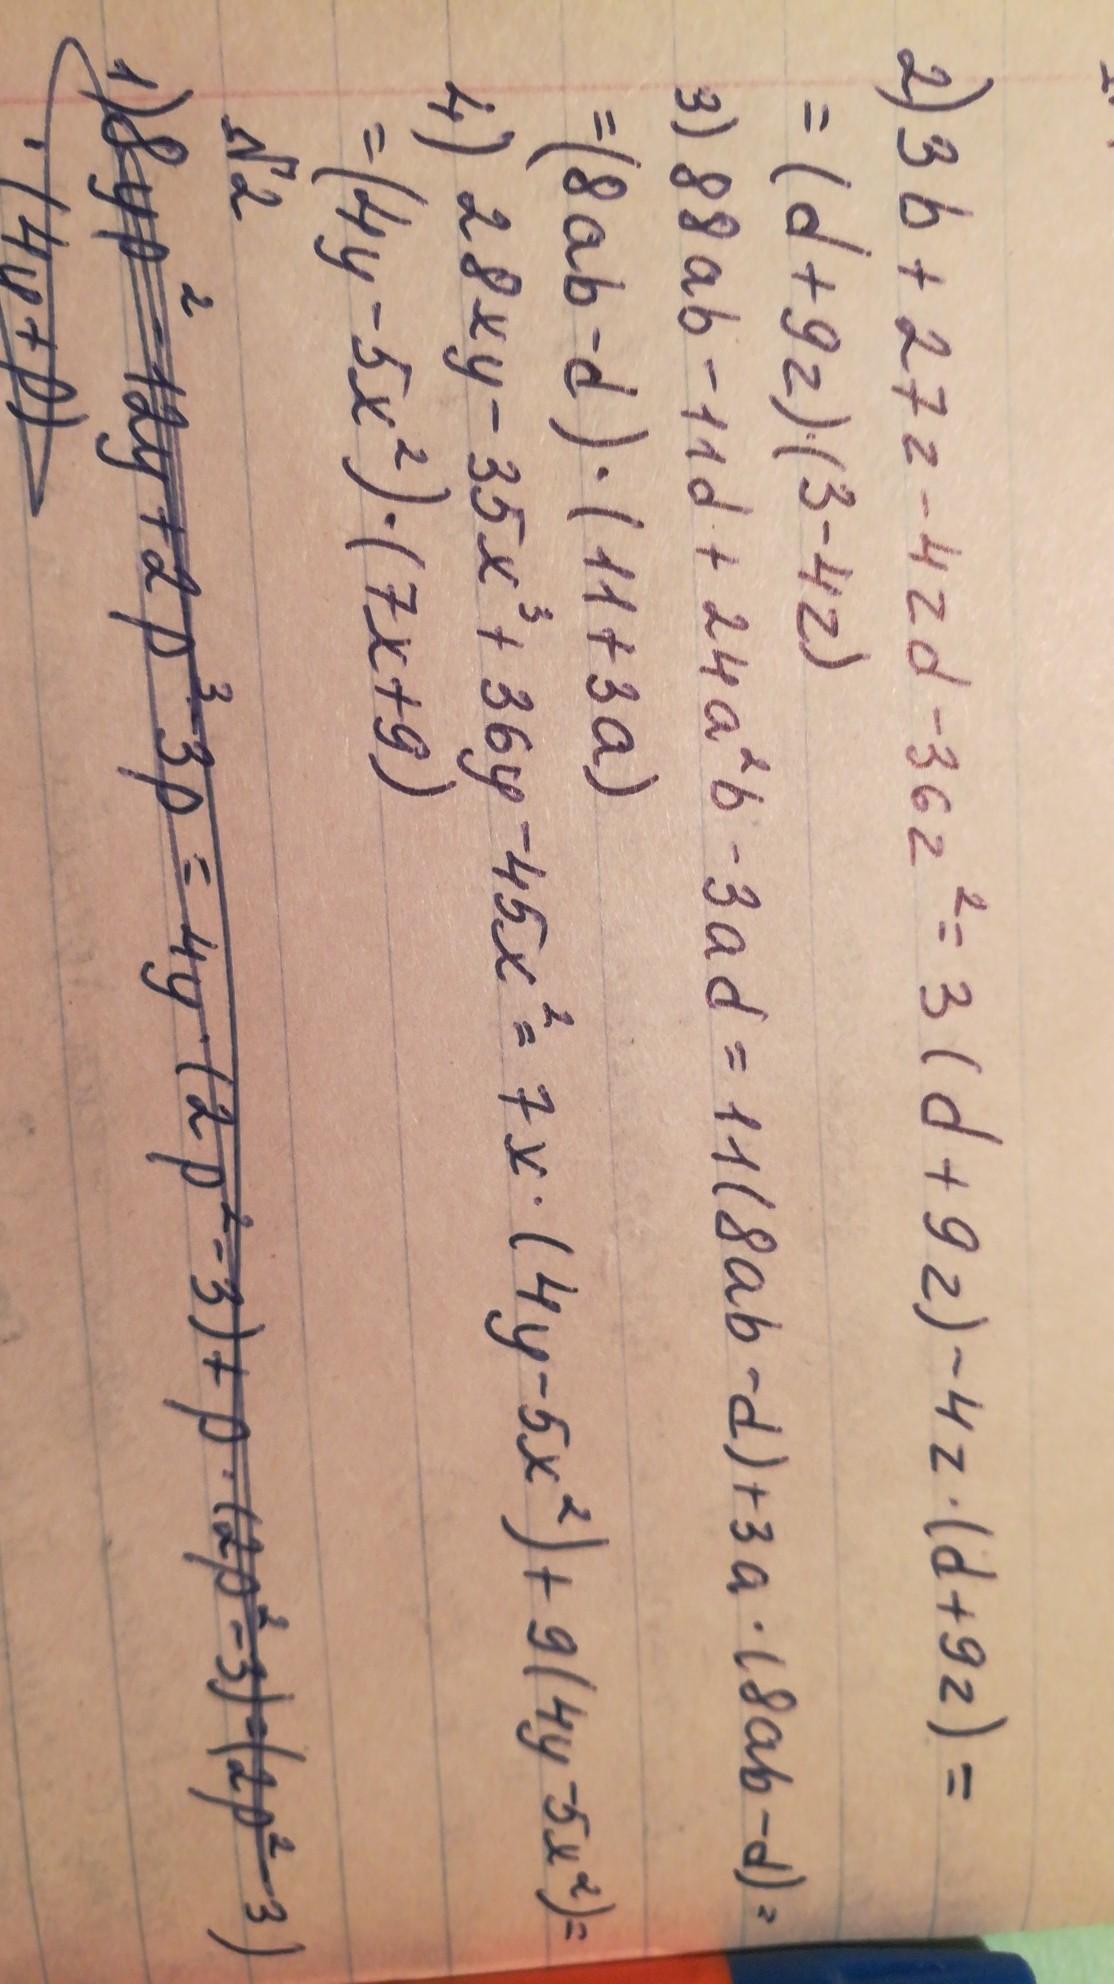 2) 3b + 27z - 4zd - 36z² = 3(d + 9z) - 4z · (d + 9z) =
= (d + 9z) · (3 - 4z)
3) 88ab - 11d + 24a²b - 3ad = 11(8ab - d) + 3a · (8ab - d) =
= (8ab - d) · (11 + 3a)
4) 28xy - 35x³ + 36y - 45x² = 7x · (4y - 5x²) + 9(4y - 5x²) =
= (4y - 5x²) · (7x + 9)
№2
1) 8yp² - 12y + 2p³ - 3p = 4y · (2p² - 3) + p · (2p² - 3) = (2p² - 3)
· (4y + p)